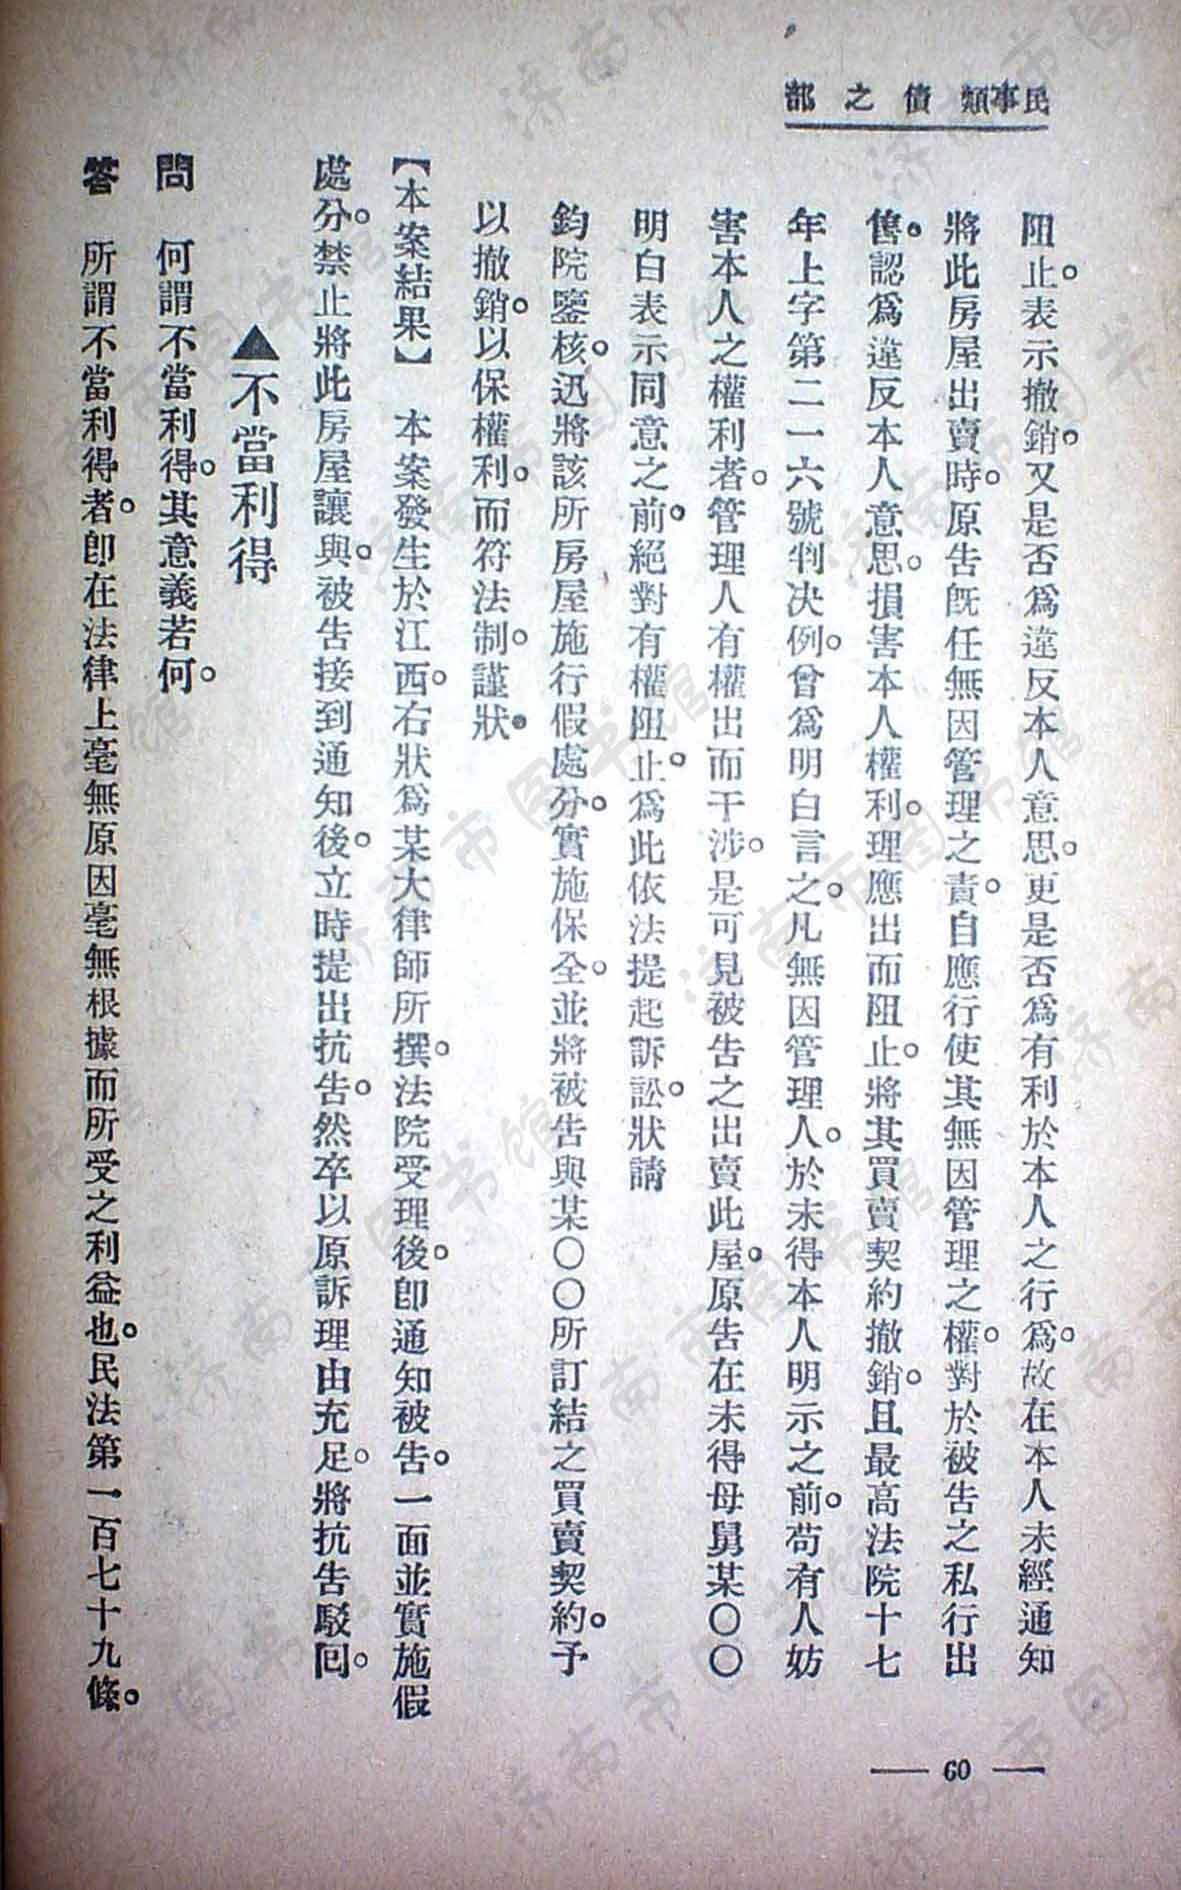 民事類 債之部
阻止。表示撤銷。又是否爲違反本人意思。更是否爲有利於本人之行爲。故在本人未經通知
將此房屋出賣時。原告旣任無因管理之責。自應行使其無因管理之權。對於被告之私行出
售。認爲違反本人意思。損害本人權利。理應出而阻止。將其買賣契約撤銷。且最高法院十七
年上字第二一六號判决例。曾爲明白言之。凡無因管理人。於未得本人明示之前。苟有人妨
害本人之權利者。管理人有權出而干涉。是可見被告之出賣此屋。原告在未得母舅某〇〇
明白表示同意之前。絕對有權阻止。爲此依法提起訴訟。狀請
鈞院鑒核。迅將該所房屋施行假處分。實施保全。並將被告與某〇〇所訂結之買賣契約。予
以撤銷。以保權利。而符法制。謹狀。
【本案結果】 本案發生於江西。右狀爲某大律師所撰。法院受理後。卽通知被告。一面並實施假
處分。禁止將此房屋讓與。被告接到通知後。立時提出抗告。然卒以原訴理由充足。將抗告駁回。
▲不當利得
問 何謂不當利得。其意義若何。
答 所謂不當利得者。卽在法律上毫無原因毫無根據而所受之利益也。民法第一百七十九條。
— 60 —
济南市图书馆